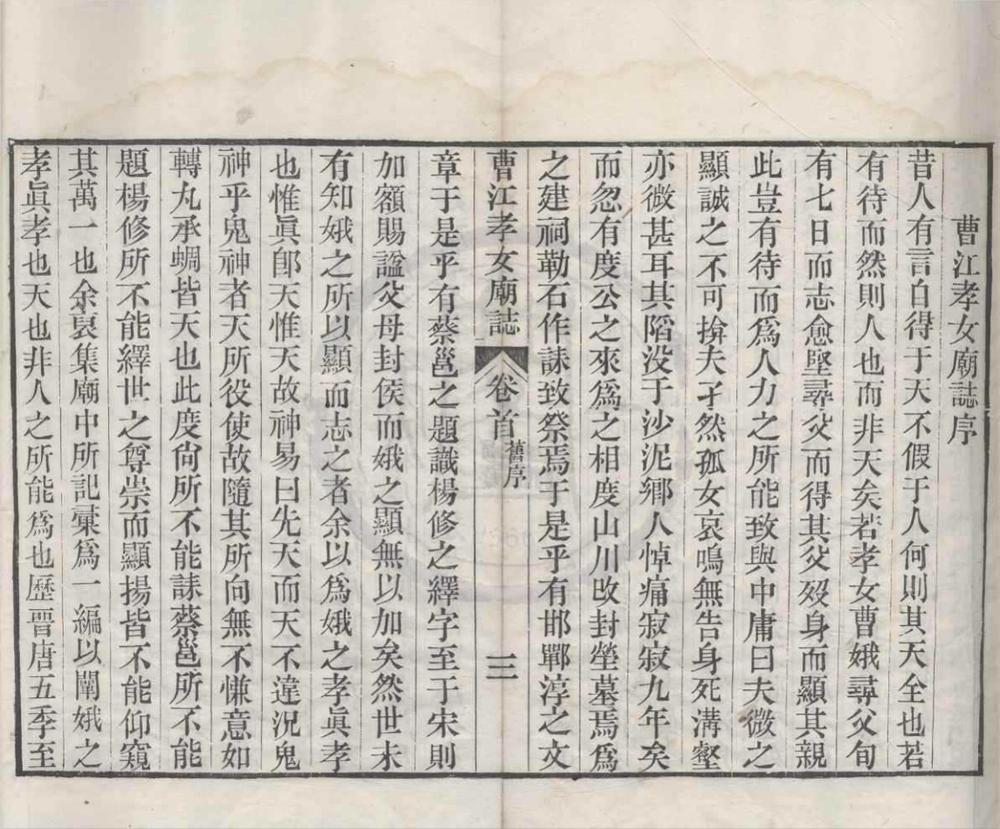 曹江孝女廟誌序
昔人有言自得于天不假于人何則其天全也若
有待而然則人也而非天矣若孝女曹娥尋父旬
有七日而志愈堅尋父而得其父歿身而顯其親
此豈有待而爲人力之所能致與中庸曰夫微之
顯誠之不可揜夫孑然孤女哀鳴無告身死溝壑
亦微甚耳其陷没于沙泥鄉人悼痛寂寂九年矣
而忽有度公之來爲之相度山川改封塋墓焉爲
之建祠勒石作誄致祭焉于是乎有邯鄲淳之文
曹江孝女廟誌 卷首 舊序 三
章于是乎有蔡邕之題識楊修之繹字至于宋則
加額賜諡父母封侯而娥之顯無以加矣然世未
有知娥之所以顯而志之者余以爲娥之孝眞孝
也惟眞卽天惟天故神易曰先天而天不違況鬼
神乎鬼神者天所役使故隨其所向無不慊意如
轉丸承蜩皆天也此度尙所不能誄蔡邕所不能
題楊修所不能繹世之尊崇而顯揚皆不能仰窺
其萬一也余裒集廟中所記彙爲一編以闡娥之
孝眞孝也天也非人之所能爲也歷晋唐五季至